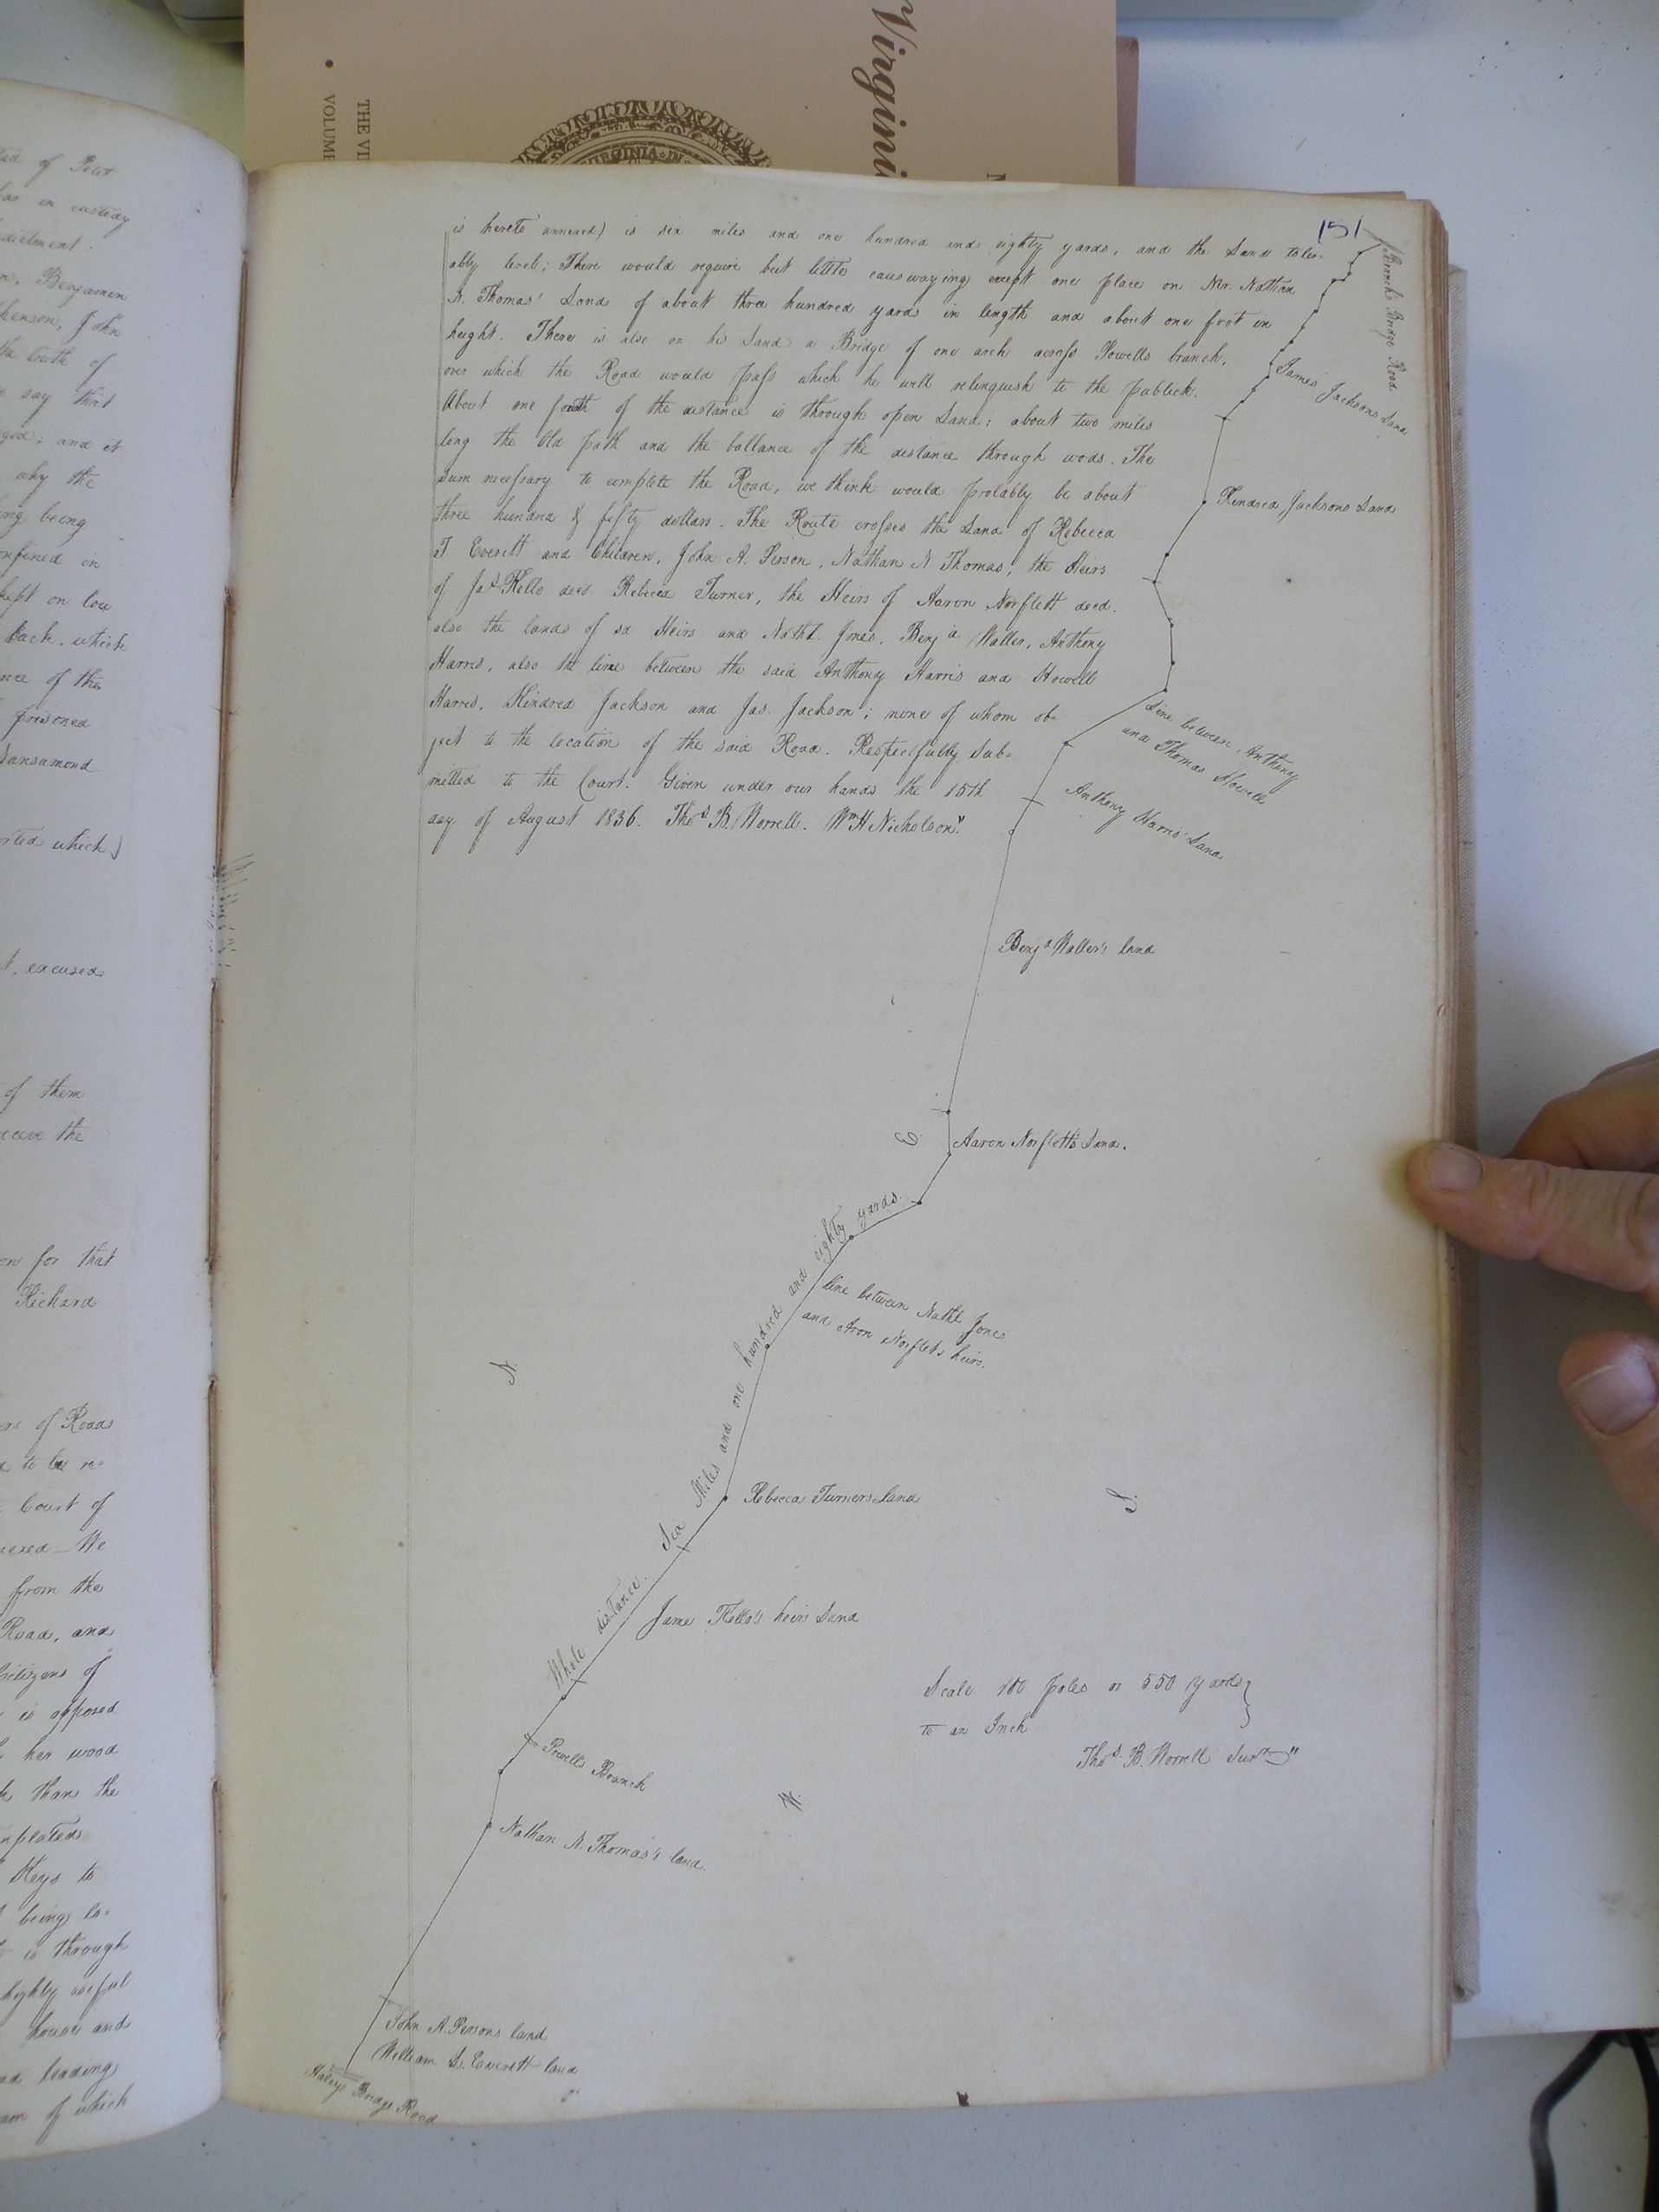 Virgini
THE VI
VOLUME
VIRGINIA IN
151
is hereto annexed) is six miles and one hundred and eighty yards, and the Land toler=
ably level; There would require but little causwaying except one place on Mr. Nathan
N. Thomas' Land of about three hundred yards in length and about one foot in
height. There is also on his Land a Bridge of one arch across Powells branch,
over which the Road would pass which he will relinquish to the publick.
About one fourth of the distance is through open Land; about two miles
long the Old path and the ballance of the distance through wods. The
Sum necessary to complete the Road, we think would probably be about
three hundred & fifty dollars. The Route crosses the Land of Rebecca
T Everett and Children, John A. Person, Nathan N Thomas, the Heirs
of Jas Kello decd. Rebecca Turner, the Heirs of Aaron Norflett decd.
also the lands of sd Heirs and Nathl. Jones. Benja Waller, Anthony
Harris, also the line between the said Anthony Harris and Howell
Harris, Kindred Jackson and Jas. Jackson; none of whom ob=
ject to the location of the said Road. Respectfully Sub=
mitted to the Court. Given under our hands the 15th
day of August 1836. Thos B. Worrell. Wm H Nicholson."
Branch's Bridge Road
James Jacksons Land
Kindred Jacksons Land
Line between Anthony
and Thomas Howell
Anthony Harris' Land
Benja Waller's land
E.
Aaron Norflett's Land.
line between Nathl Jones
and Aron Norflets heirs.
N.
Whole distance. Six Miles and one hundred and eighty yards.
Rebecca Turners Land
S.
Jame Kello's heirs Land
Scale 100 poles or 550 yards
to an Inch
Thos. B. Worrell Surr"
Powells Branch
W.
Nathan N. Thomas's land.
John A. Persons land
William Everett land
Haleys Bridge Road
ted of Petit
has in custody
dictment:
n, Benjamin
henson, John
the truth of
say that
god; and it
why the
ing being
onfined in
kept on low
back, which
nce of the
prisoned
Nansamond
rted which
t, excused
of them
receive the
on for that
Richard
ers of Roads
to be re=
Court of
nexed - We
from the
Road, and
Citizens of
is opposed
her wood
than the
mplated
Keys to
being lo=
is through
highly useful
house and
leading
of which